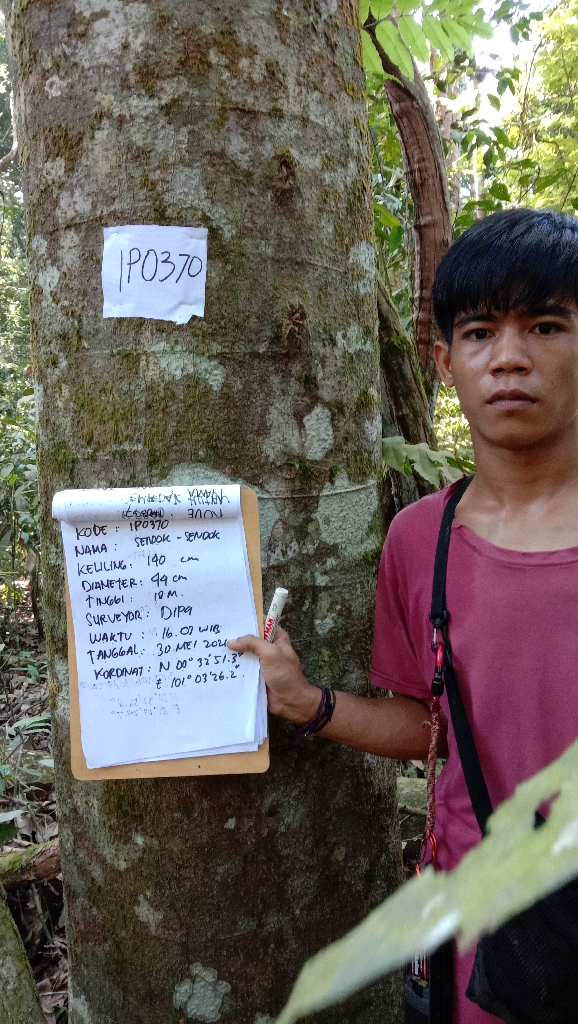 IP0370
KODE : IP0370
NAMA : SENDOK - SENDOK
KELILING : 140 cm
DIAMETER : 44 cm
TINGGI : 18 M.
SURVEYOR : DIPA
WAKTU : 16.03 WIB
TANGGAL : 30 MEI 202
KORDINAT : N 00° 32' 51.3"
E 101° 03' 26.2"